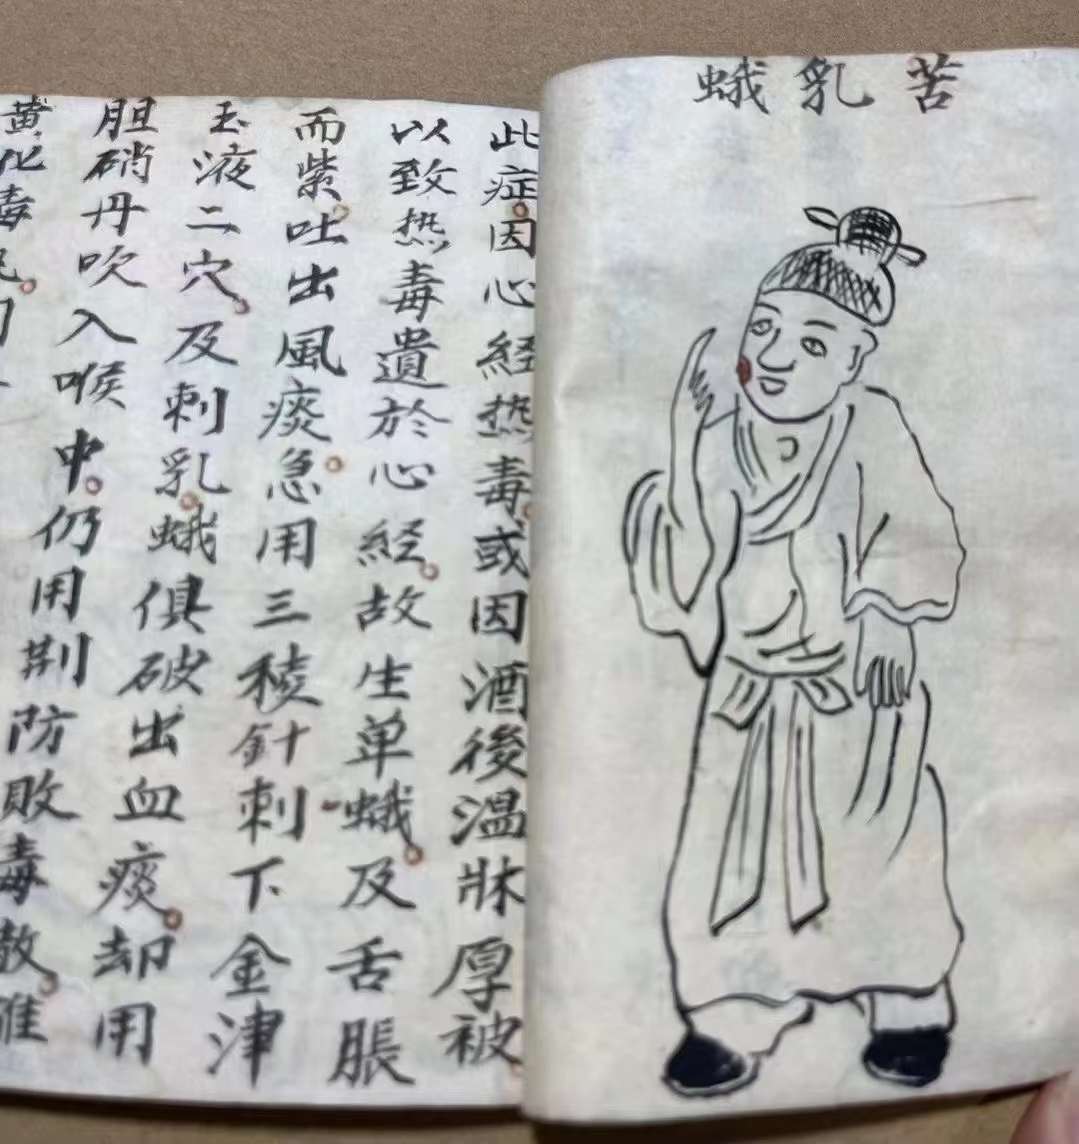 苦乳蛾
此症。因心經热毒。或因酒後温牀厚被。
以致热毒遺於心經。故生单蛾。及舌脹
而紫。吐出風痰。急用三稜針刺下金津
玉液二穴。及刺乳。蛾俱破出血痰。却用
胆硝丹吹入喉中。仍用荆防敗毒散。准
黄化毒